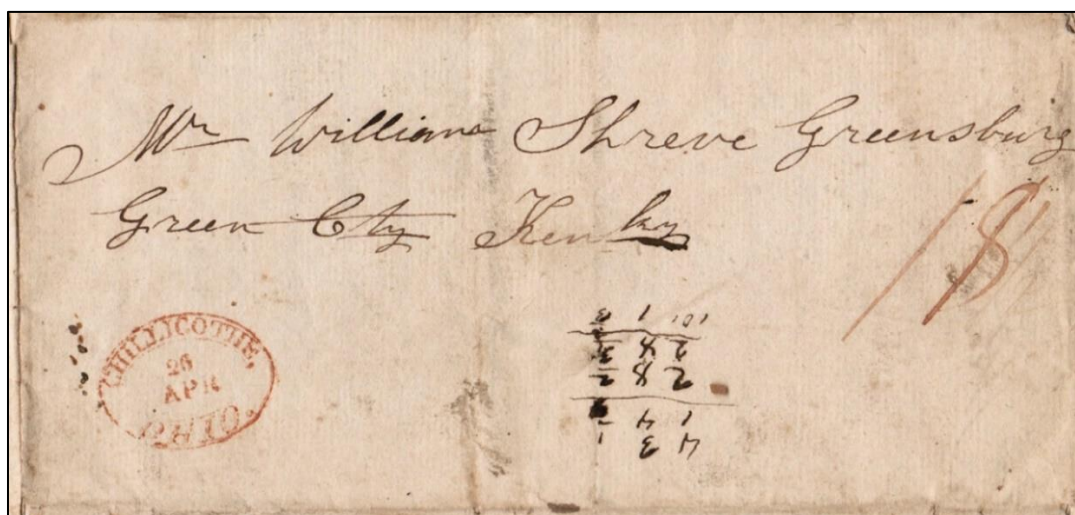 Mr William Shreve Greensburg
Green Cty Kenky
18
CHILLICOTHE,
26
APR
OHIO.